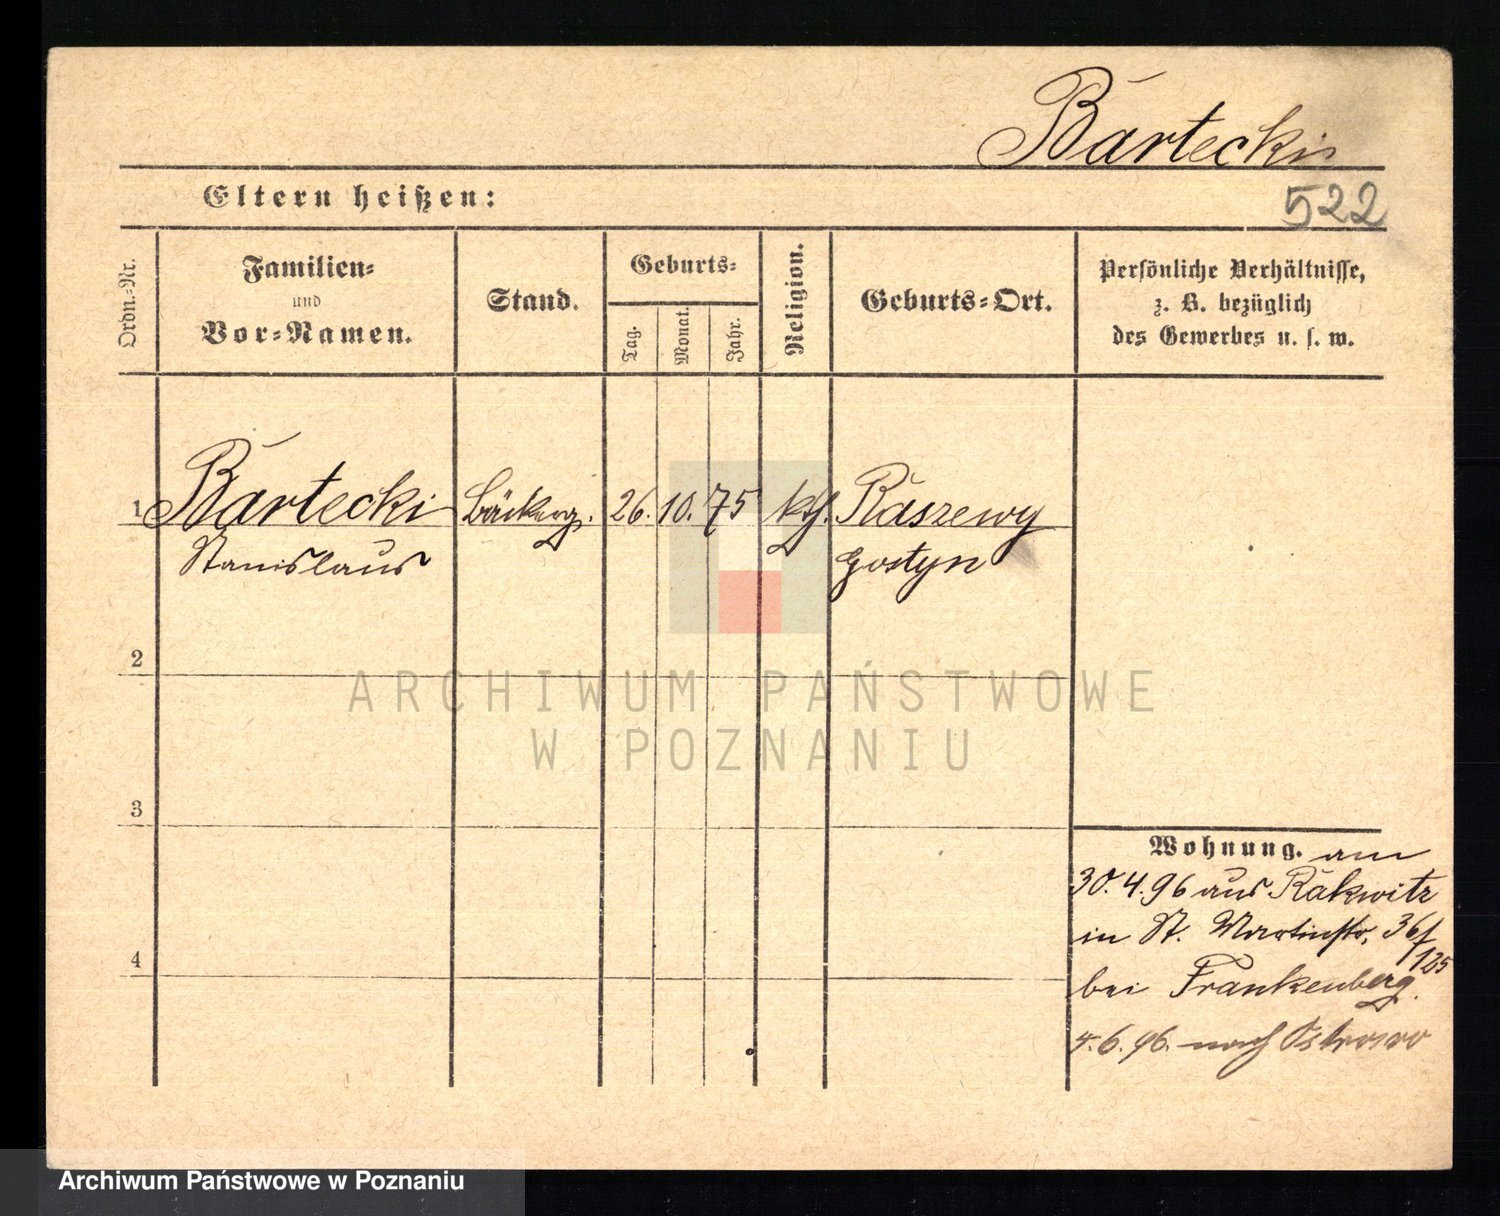 Bartecki
Eltern heißen:
522
Ordn.-Nr.
Familien-
und
Vor-Namen.
Stand.
Geburts-
Tag.
Monat.
Jahr.
Religion.
Geburts-Ort.
Persönliche Verhältnisse,
z. B. bezüglich
des Gewerbes u. s. w.
1 Bartecki Bäckerg. 26. 10. 75 kth. Raszewy
Stanislaus Gostyn
2
3
4
Wohnung. am
30.4.96 aus Rakwitz
in St. Martinstr. 36/
125
bei Frankenberg.
4.6.96. nach Ostrowo
ARCHIWUM PAŃSTWOWE
W POZNANIU
Archiwum Państwowe w Poznaniu